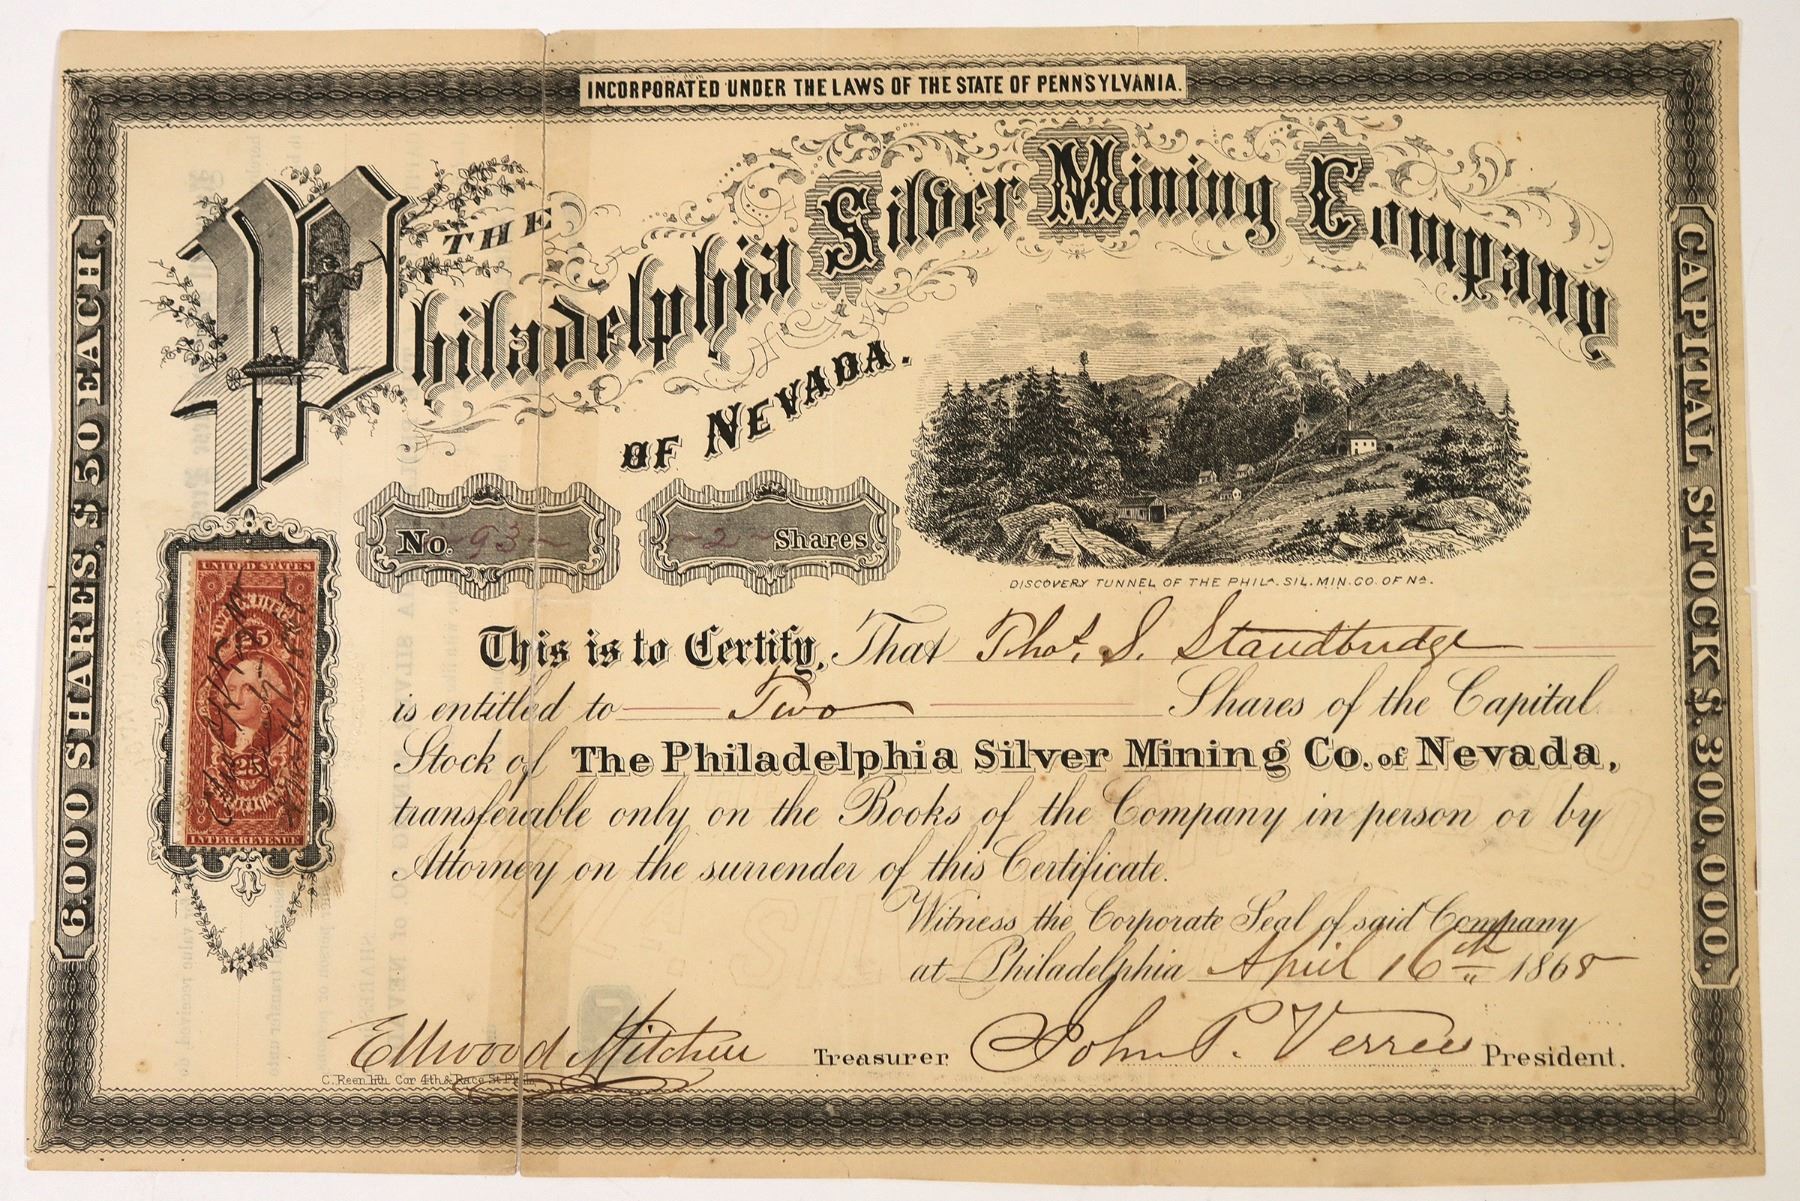 INCORPORATED UNDER THE LAWS OF THE STATE OF PENNSYLVANIA.
6.000 SHARES, $50 EACH.
CAPITAL STOCK $.300,000.
THE
Philadelphia Silver Mining Company
OF NEVADA.
No. 93
2 Shares
DISCOVERY TUNNEL OF THE PHILA. SIL. MIN. CO. OF Na.
UNITED STATES
25
25
INTER. REVENUE
This is to Certify, That Thos. S. Standbridge
is entitled to Two Shares of the Capital
Stock of The Philadelphia Silver Mining Co. of Nevada,
transferable only on the Books of the Company in person or by
Attorney on the surrender of this Certificate.
Witness the Corporate Seal of said Company
at Philadelphia April 16th 1868
Ellwood Treasurer John P. Verree President.
C. Reen lith Cor 4th & Race St Phila